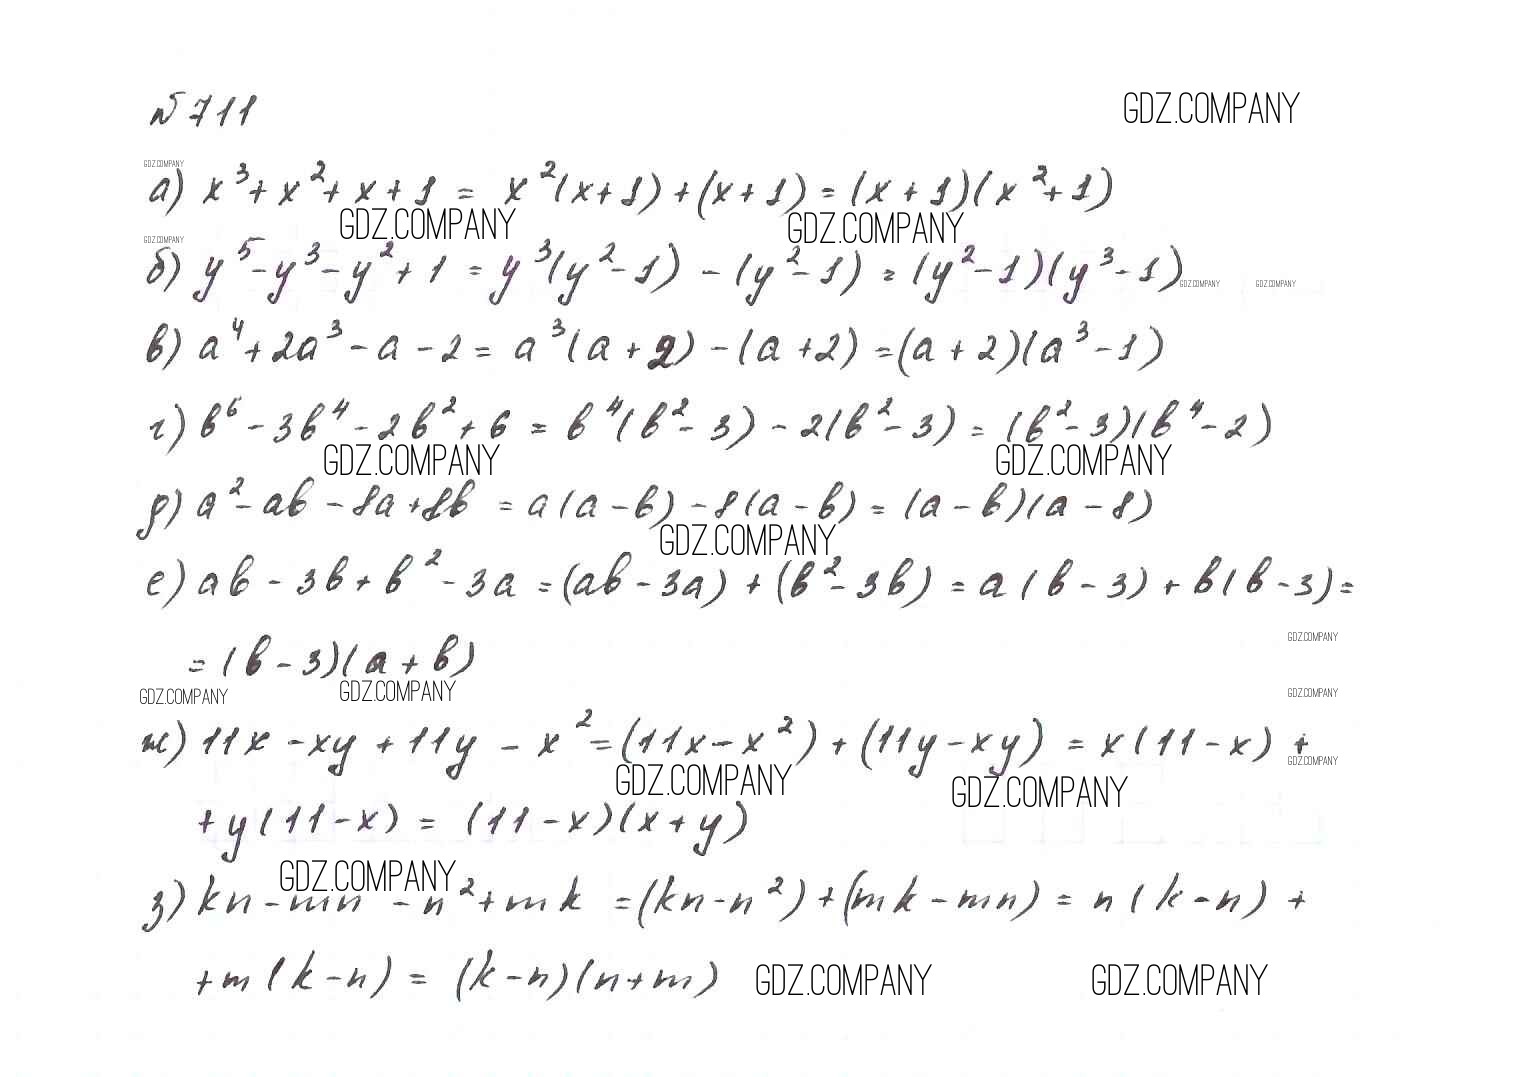 № 711
GDZ.COMPANY
GDZ.COMPANY
а) x³ + x² + x + 1 = x²(x+1) + (x+1) = (x+1)(x²+1)
GDZ.COMPANY GDZ.COMPANY
GDZ.COMPANY
б) y⁵ - y³ - y² + 1 = y³(y² - 1) - (y² - 1) = (y² - 1)(y³ - 1)
GDZ.COMPANY GDZ.COMPANY
в) a⁴ + 2a³ - a - 2 = a³(a + 2) - (a + 2) = (a + 2)(a³ - 1)
г) b⁶ - 3b⁴ - 2b² + 6 = b⁴(b² - 3) - 2(b² - 3) = (b² - 3)(b⁴ - 2)
GDZ.COMPANY GDZ.COMPANY
д) a² - ab - 8a + 8b = a(a - b) - 8(a - b) = (a - b)(a - 8)
GDZ.COMPANY
е) ab - 3b + b² - 3a = (ab - 3a) + (b² - 3b) = a(b - 3) + b(b - 3) =
GDZ.COMPANY
= (b - 3)(a + b)
GDZ.COMPANY GDZ.COMPANY GDZ.COMPANY
ж) 11x - xy + 11y - x² = (11x - x²) + (11y - xy) = x(11 - x) +
GDZ.COMPANY
GDZ.COMPANY GDZ.COMPANY
+ y(11 - x) = (11 - x)(x + y)
GDZ.COMPANY
з) kn - mn - n² + mk = (kn - n²) + (mk - mn) = n(k - n) +
+ m(k - n) = (k - n)(n + m)
GDZ.COMPANY GDZ.COMPANY